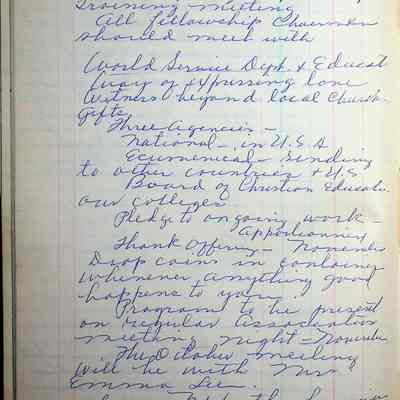 Training meeting
All fellowship Chairmen
should meet with
World Service Dept. & Educat.
Way of expressing love
Witness beyond local Church.
Gifts
Three Agencies -
National - in U.S.A
Ecumenical - sending
to other countries & U.S.
Board of Christian Educate.
our colleges.
Pledge to ongoing work -
Apportioning
Thank Offering - November
Drop coins in container
whenever anything good
happens to you.
Program to be present
on regular Association
meeting night - November
The October meeting
will be with Mrs
Emma Lee.